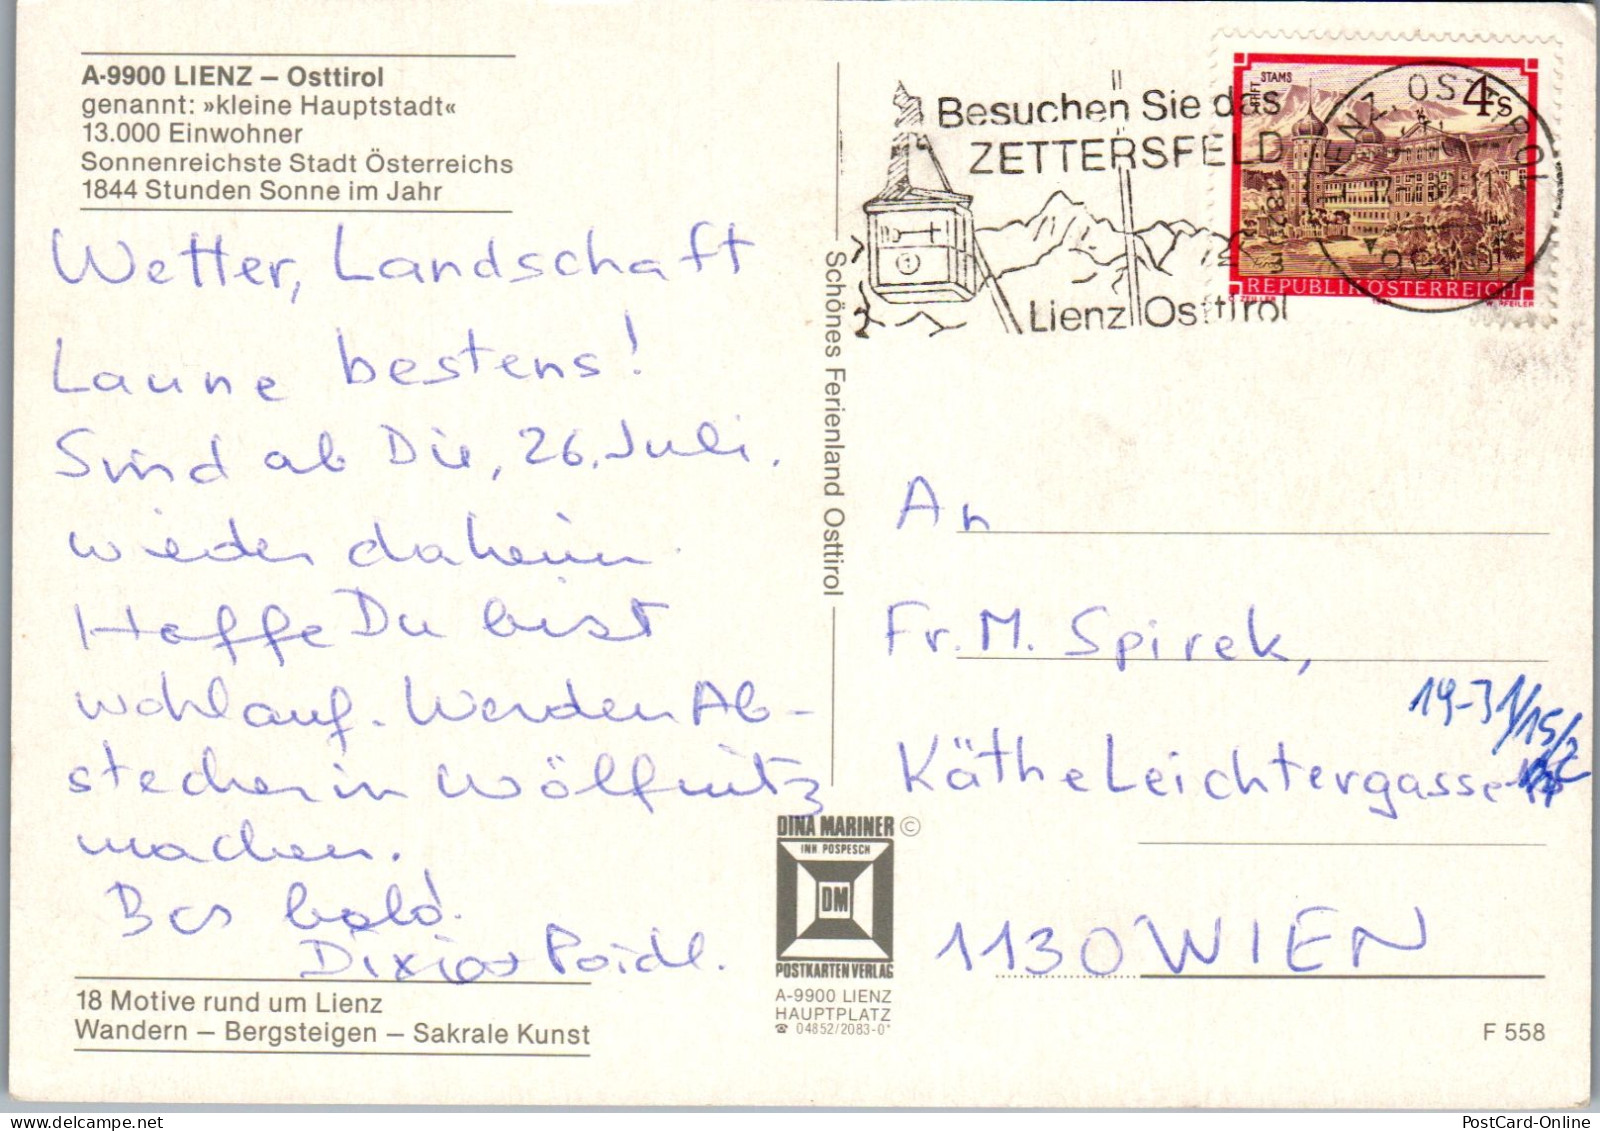 A-9900 LIENZ – Osttirol
genannt: »kleine Hauptstadt«
13.000 Einwohner
Sonnenreichste Stadt Österreichs
1844 Stunden Sonne im Jahr
Wetter, Landschaft
Laune bestens!
Sind ab Die, 26. Juli.
wieder daheim
Hoffe Du bist
wohlauf. Werden Ab-
stecher in Wölfnitz
machen.
Bis bald.
18 Motive rund um Lienz
Wandern – Bergsteigen – Sakrale Kunst
Schönes Ferienland Osttirol
DINA MARINER ©
INH POSPESCH
DM
POSTKARTEN VERLAG
A-9900 LIENZ
HAUPTPLATZ
☎ 04852/2083-0*
Besuchen Sie das
ZETTERSFELD
Lienz Osttirol
STIFT STAMS
4 S
REPUBLIK ÖSTERREICH
An
Fr. M. Spirek,
19-31/15/2
Käthe Leichtergasse
1130 WIEN
F 558
PostCard-Online
www.delcampe.net